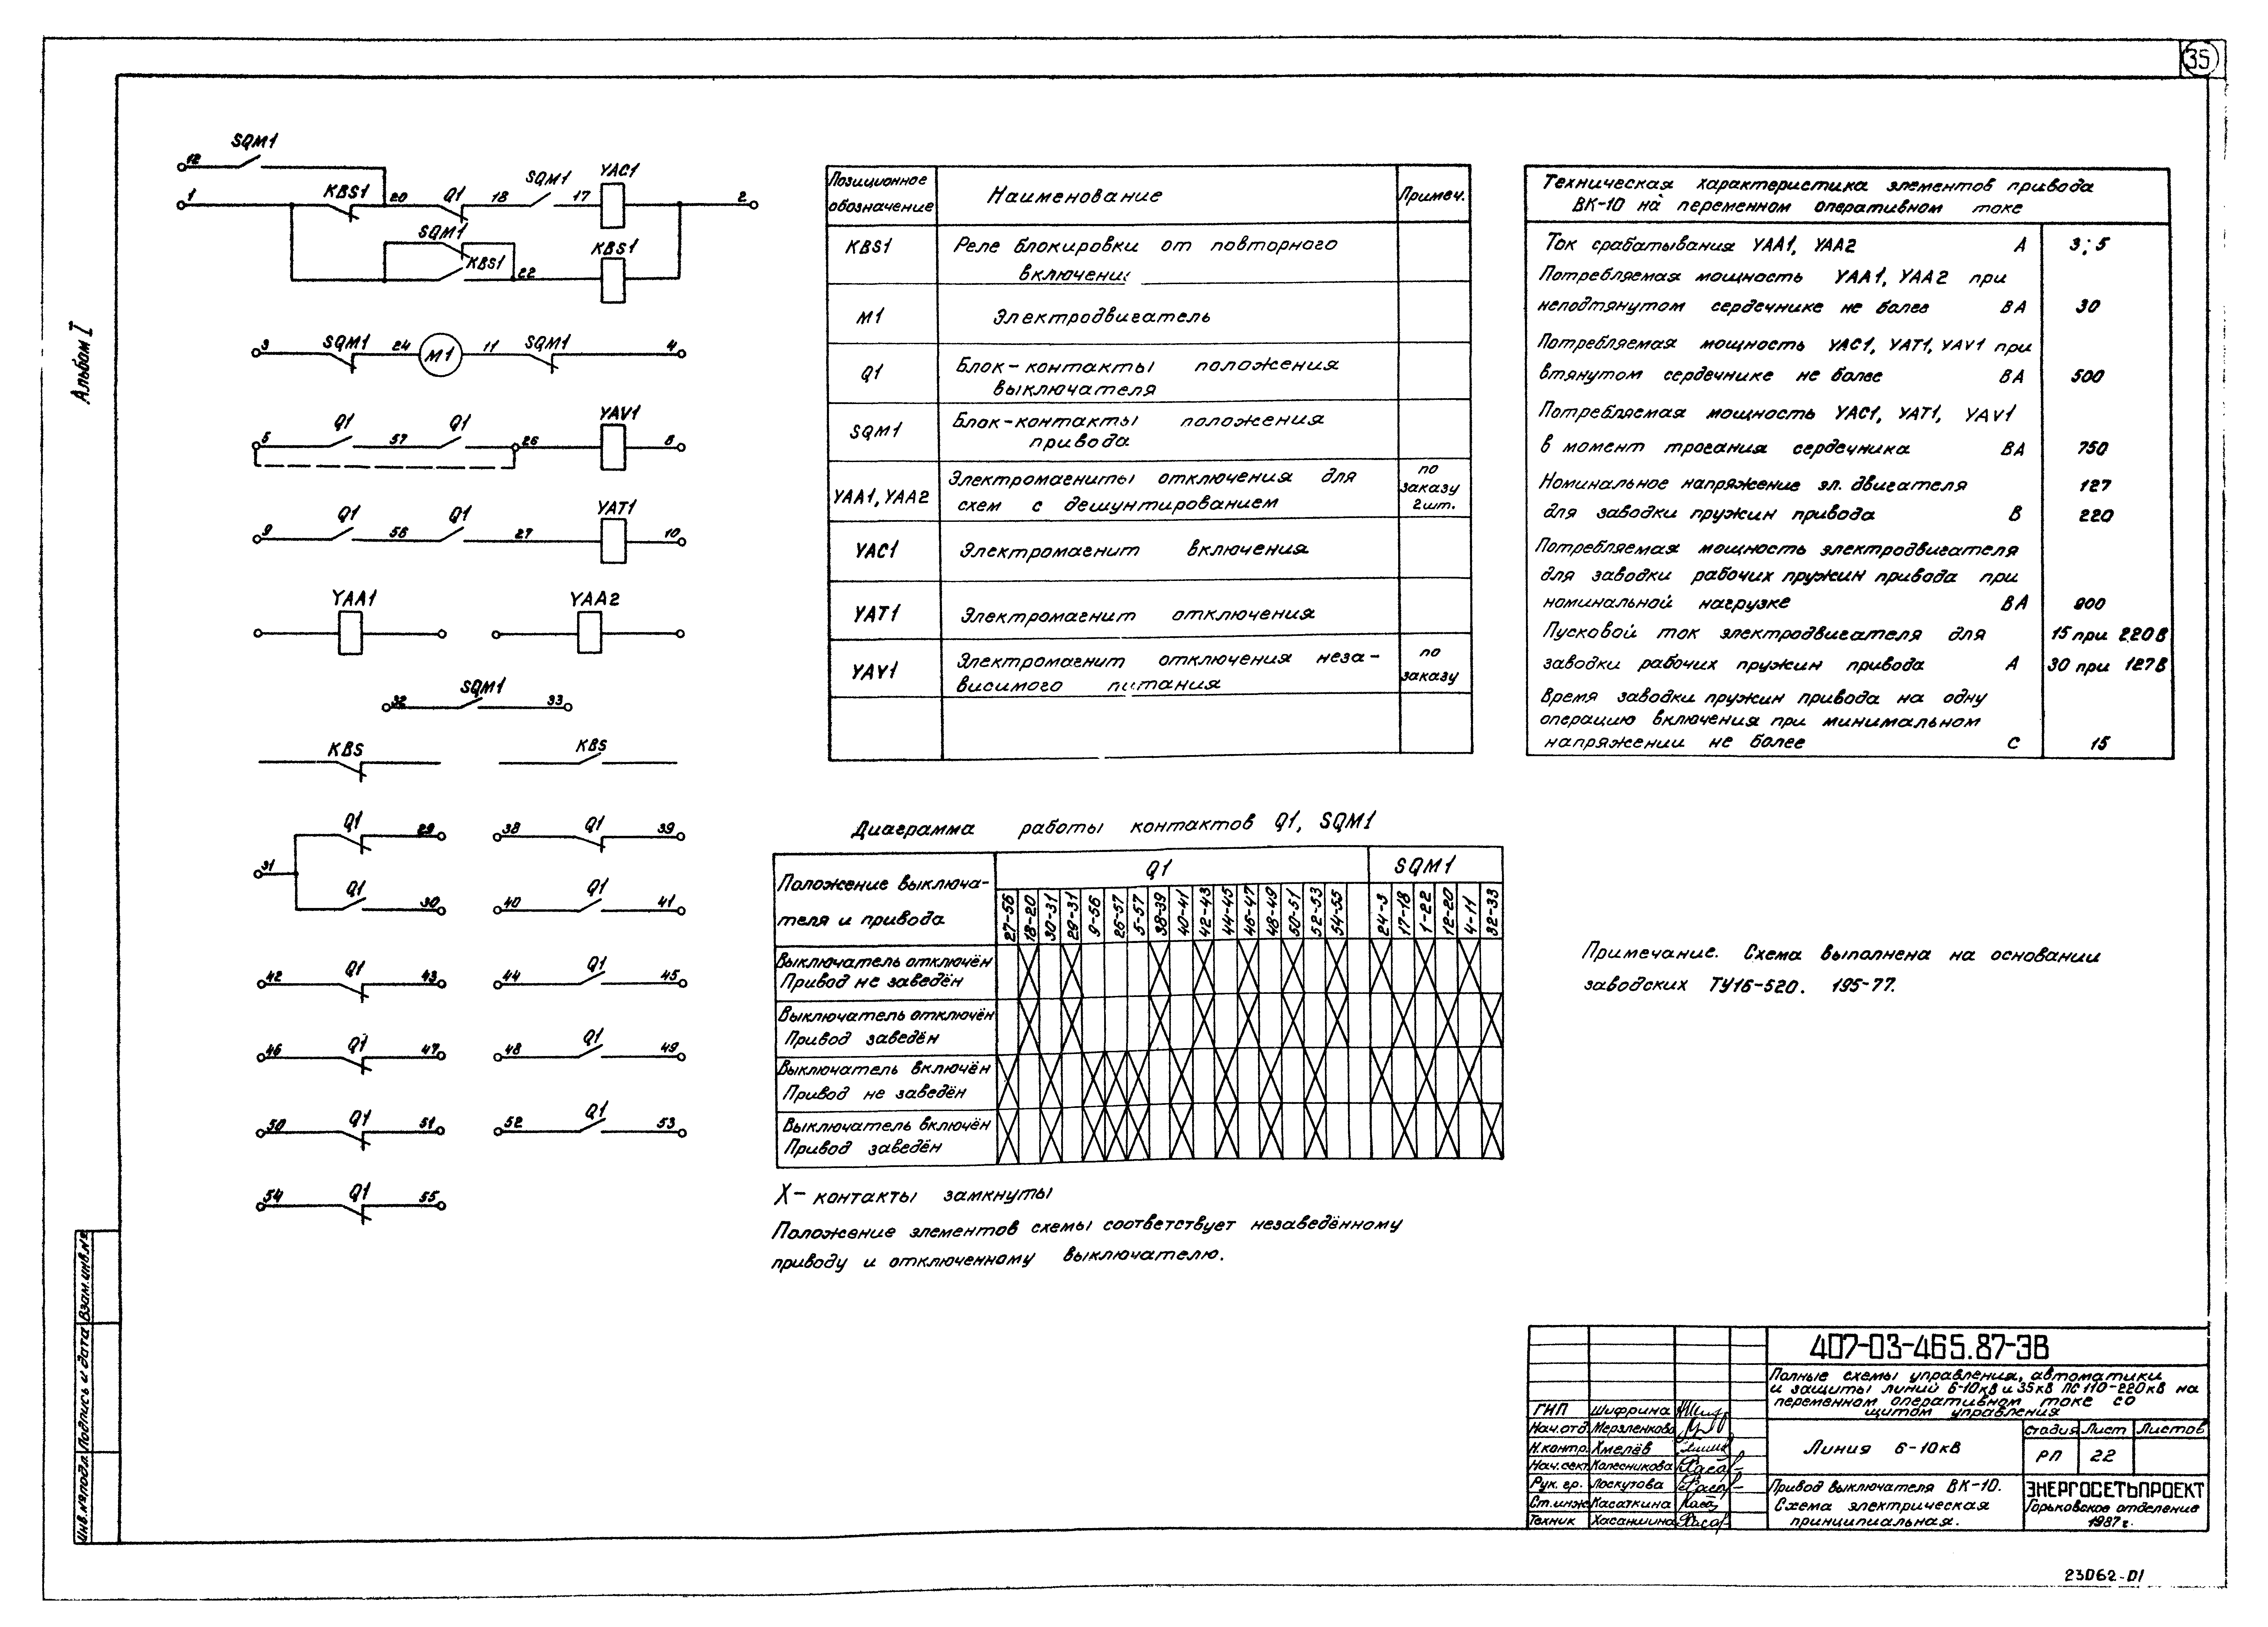 35
Альбом I
SQM1
12
1
KBS1
20
Q1
18
SQM1
17
YAC1
2
SQM1
KBS1
22
KBS1
3
SQM1
24
M1
11
SQM1
4
5
Q1
57
Q1
26
YAV1
6
9
Q1
56
Q1
27
YAT1
10
YAA1
YAA2
32
SQM1
33
KBS
KBS
31
Q1
29
Q1
30
38
Q1
39
40
Q1
41
42
Q1
43
44
Q1
45
46
Q1
47
48
Q1
49
50
Q1
51
52
Q1
53
54
Q1
55
Позиционное обозначение
Наименование
Примеч.
KBS1
Реле блокировки от повторного
включения
M1
Электродвигатель
Q1
Блок-контакты положения
выключателя
SQM1
Блок-контакты положения
привода
YAA1, YAA2
Электромагниты отключения для
схем с дешунтированием
по
заказу
2шт.
YAC1
Электромагнит включения
YAT1
Электромагнит отключения
YAV1
Электромагнит отключения неза-
висимого питания
по
заказу
Техническая характеристика элементов привода
ВК-10 на переменном оперативном токе
Ток срабатывания YAA1, YAA2 А 3; 5
Потребляемая мощность YAA1, YAA2 при
неподтянутом сердечнике не более ВА 30
Потребляемая мощность YAC1, YAT1, YAV1 при
втянутом сердечнике не более ВА 500
Потребляемая мощность YAC1, YAT1, YAV1
в момент трогания сердечника ВА 750
Номинальное напряжение эл. двигателя 127
для заводки пружин привода В 220
Потребляемая мощность электродвигателя
для заводки рабочих пружин привода при
номинальной нагрузке ВА 900
Пусковой ток электродвигателя для 15 при 220В
заводки рабочих пружин привода А 30 при 127В
Время заводки пружин привода на одну
операцию включения при минимальном
напряжении не более С 15
Диаграмма работы контактов Q1, SQM1
Положение выключа-
теля и привода
Q1
SQM1
27-56
18-20
30-31
29-31
9-56
26-57
5-57
38-39
40-41
42-43
44-45
46-47
48-49
50-51
52-53
54-55
24-3
17-18
1-22
12-20
4-11
32-33
Выключатель отключён
Привод не заведён
Выключатель отключён
Привод заведён
Выключатель включён
Привод не заведён
Выключатель включён
Привод заведён
X- контакты замкнуты
Положение элементов схемы соответствует незаведённому
приводу и отключенному выключателю.
Примечание. Схема выполнена на основании
заводских ТУ16-520. 195-77.
Инв.№подл.
Подпись и дата
Взам.инв.№
407-03-465.87-ЭВ
Полные схемы управления, автоматики
и защиты линий 6-10кв и 35кв ПС 110-220кв на
переменном оперативном токе со
щитом управления
ГИП Шифрина
Нач.отд. Мерзленкова
Н.контр. Хмелёв
Нач.сект. Колесникова
Рук. гр. Лоскутова
Ст.инж. Касаткина
Техник Хасаншина
Линия 6-10кв
Стадия Лист Листов
РП 22
Привод выключателя ВК-10.
Схема электрическая
принципиальная.
ЭНЕРГОСЕТЬПРОЕКТ
Горьковское отделение
1987г.
23062-01